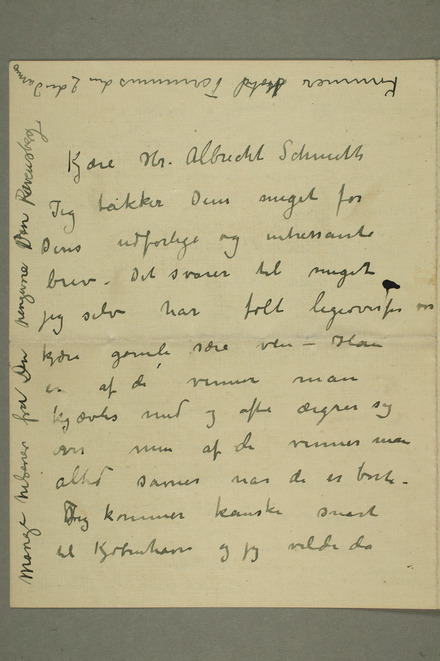 Kjære Hr. Albrecht Schmidt
Jeg takker Dem meget for
Deres udførlige og intressante
brev. Det svarer til meget
jeg selv har følt ligeoverfor vor
kjære gamle sære ven – Han
er af de venner man
kjævles med og ofte ærgrer sig
over men af de venner man
altid savner nar de er borte.
Jeg kommer kanske snart
til Kjøbenhavn og jeg vilde da
Mange hilsener fra Den